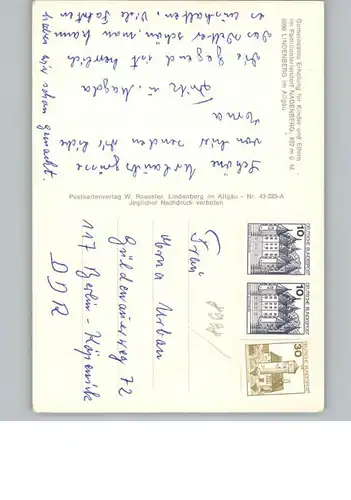 Gemeinsame Erholung für Kinder und Eltern
im Familienferiendorf NADENBERG, 802 m ü. M.
8998 LINDENBERG im Allgäu
Schöne Urlaubsgrüsse
von hier senden Dir liebe
Norna
Fritz u. Magda
Die Gegend ist herrlich
das Wetter schön, man kann
es aushalten. Viele Fahrten
haben wir schon gemacht.
Postkartenverlag W. Roessler, Lindenberg im Allgäu - Nr. 43-223-A
Jeglicher Nachdruck verboten
Frau
Norna Urban
Güldenauerweg 72
117 Berlin-Köpenick
DDR
10
DEUTSCHE BUNDESPOST
10
DEUTSCHE BUNDESPOST
30
DEUTSCHE BUNDESPOST